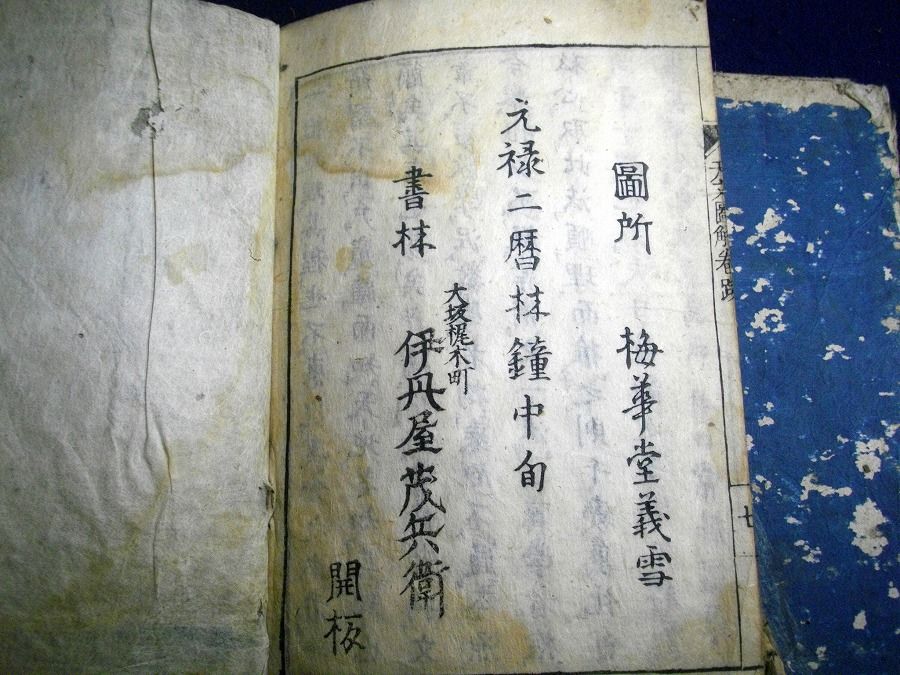 圖所 梅華堂義雪
元禄二暦林鐘中旬
大坂梶木町
書林 伊丹屋茂兵衛
開板
天文圖解卷跋
七